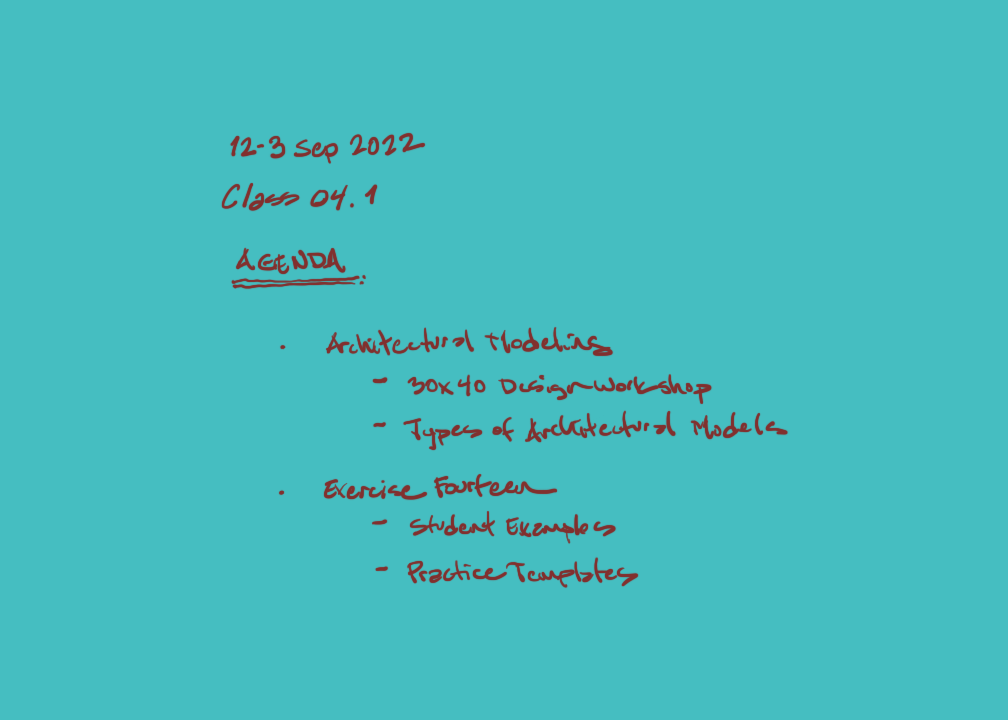 12-3 Sep 2022
Class 04.1
AGENDA
· Architectural Modeling
- 30x40 Design Workshop
- Types of Architectural Models
· Exercise Fourteen
- Student Examples
- Practice Templates